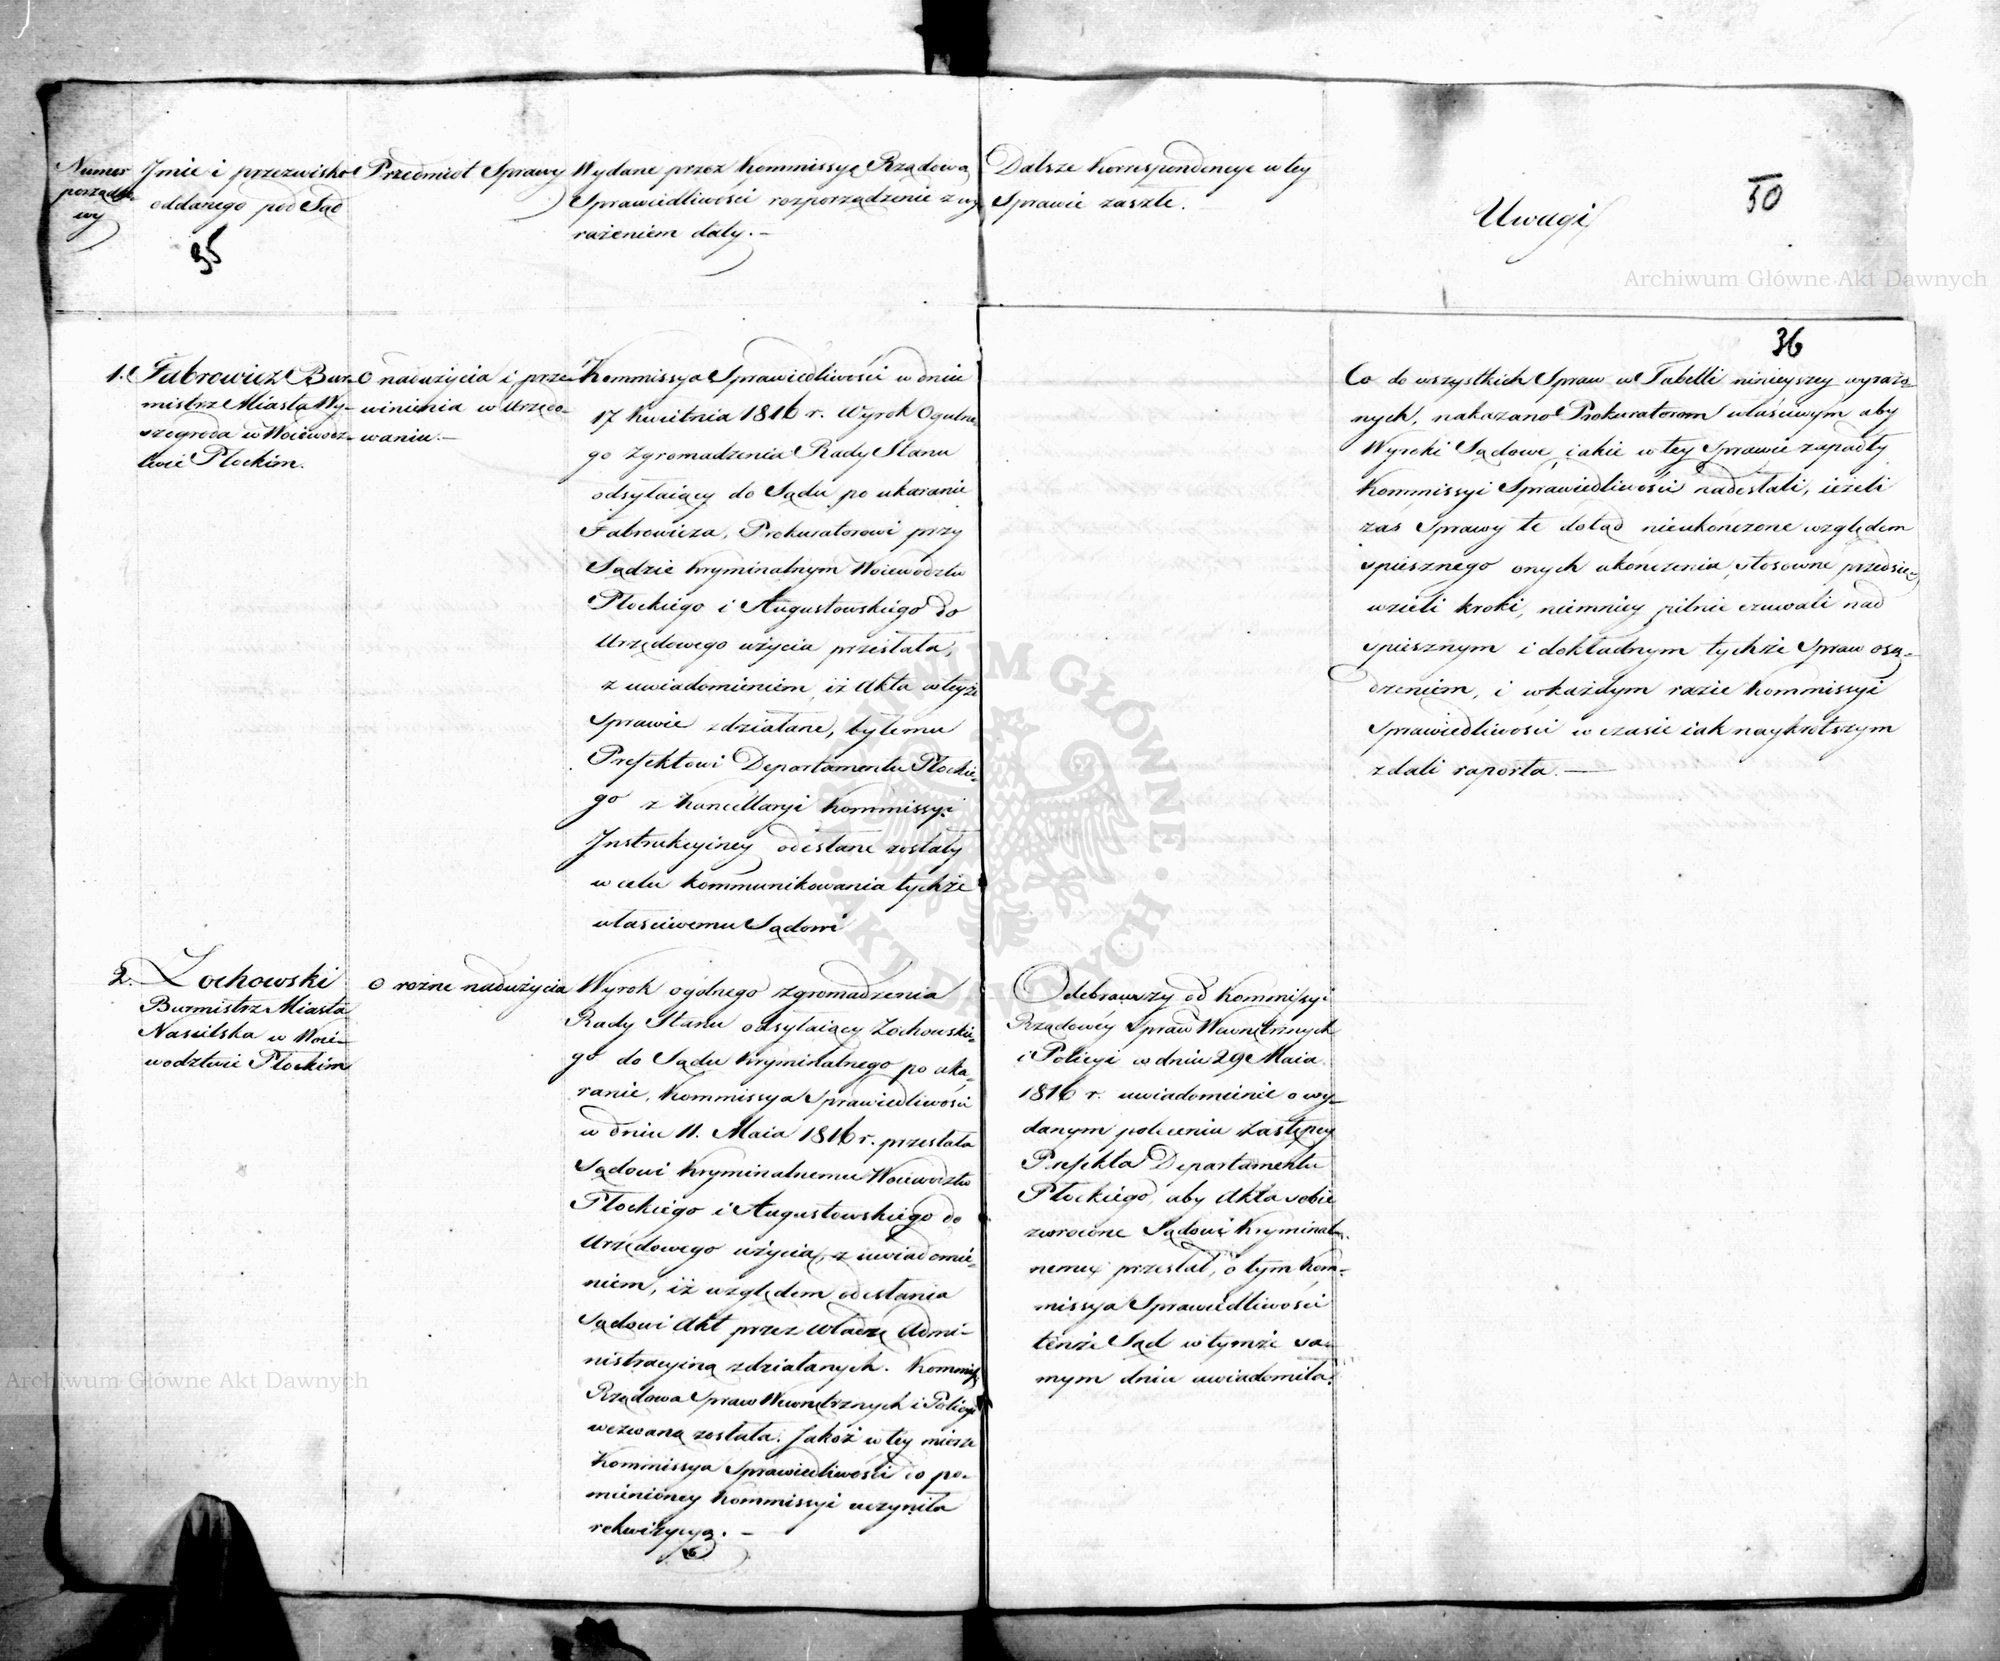 Numer
porządko-
wy
Jmie i przezwisko
oddanego pod Sąd
35
Przedmiot Sprawy
Wydane przez Kommissyę Rządową
Sprawiedliwości rozporządzenie z wy
rażeniem daty. –
Dalsze Korrespondencye w tey
Sprawie zaszłe.
Uwagi
50
36
1.
Fabrowicz Bur-
mistrz Miasta Wy-
szogroda w Woiewodz-
twie Płockim.
O nadużycia i prze-
winienia w Urzędo-
waniu. –
Kommissya Sprawiedliwości w dniu
17 Kwietnia 1816 r. Wyrok Ogulne
go Zgromadzenia Rady Stanu
odsyłaiący do Sądu po ukaranie
Fabrowicza, Prokuratorowi przy
Sądzie Kryminalnym Woiewodztw
Płockiego i Augustowskiego do
Urzędowego użycia przesłała,
z uwiadomieniem, iż Akta w teyże
Sprawie zdziałane, byłemu
Prefektowi Departamentu Płockie-
go z Kancellaryi Kommissyi
Jnstrukcyiney odesłane zostały
w celu kommunikowania tychże
właściwemu Sądowi
Co do wszystkich Spraw w Tabelli ninieyszey wyrażo-
nych, nakazano Prokuratorom właściwym aby
Wyroki Sądowe, iakie w tey Sprawie zapadły
Kommissyi Sprawiedliwości nadesłali, ieżeli
zaś Sprawy te dotąd nieukończone względem
spiesznego onych ukończenia, stosowne przedsię-
wzieli kroki, niemniey pilnie czuwali nad
spiesznym i dokładnym tychże Spraw osą-
dzeniem, i w każdym razie Kommissyi
Sprawiedliwości w czasie iak naykrótszym
zdali raporta. —
2.
Zochowski
Burmistrz Miasta
Nasielska w Woie-
wodztwie Płockim
O rożne nadużycia
Wyrok ogólnego Zgromadzenia
Rady Stanu odsyłaiący Zochowskie-
go do Sądu Kryminalnego po uka-
ranie, Kommissya Sprawiedliwości
w dniu 11. Maia 1816 r. przesłała
Sądowi Kryminalnemu Woiewodztw
Płockiego i Augustowskiego do
Urzędowego użycia, z uwiadomie-
niem, iż względem odesłania
Sądowi Akt przez Władzę Admi-
nistracyiną zdziałanych. Kommiss:
Rządowa Spraw Wewnętrznych i Policyi
wezwaną została. Jakoż w tey mierze
Kommissya Sprawiedliwości do po-
mienioney Kommissyi uczyniła
rekwizycyą. –
Odebrawszy od Kommissyi
Rządowéy Spraw Wewnętrznych
i Policyi w dniu 29 Maia
1816 r. uwiadomienie o wy-
danym poleceniu Zastępcy
Prefekta Departamentu
Płockiego, aby Akta sobie
zwrocone Sądowi Kryminal-
nemu przesłał, o tym Kom-
missya Sprawiedliwości
tenże Sąd w tymże sa-
mym dniu uwiadomiła.
Archiwum Główne Akt Dawnych
ARCHIWUM GŁÓWNE · AKT DAWNYCH ·
Archiwum Główne Akt Dawnych